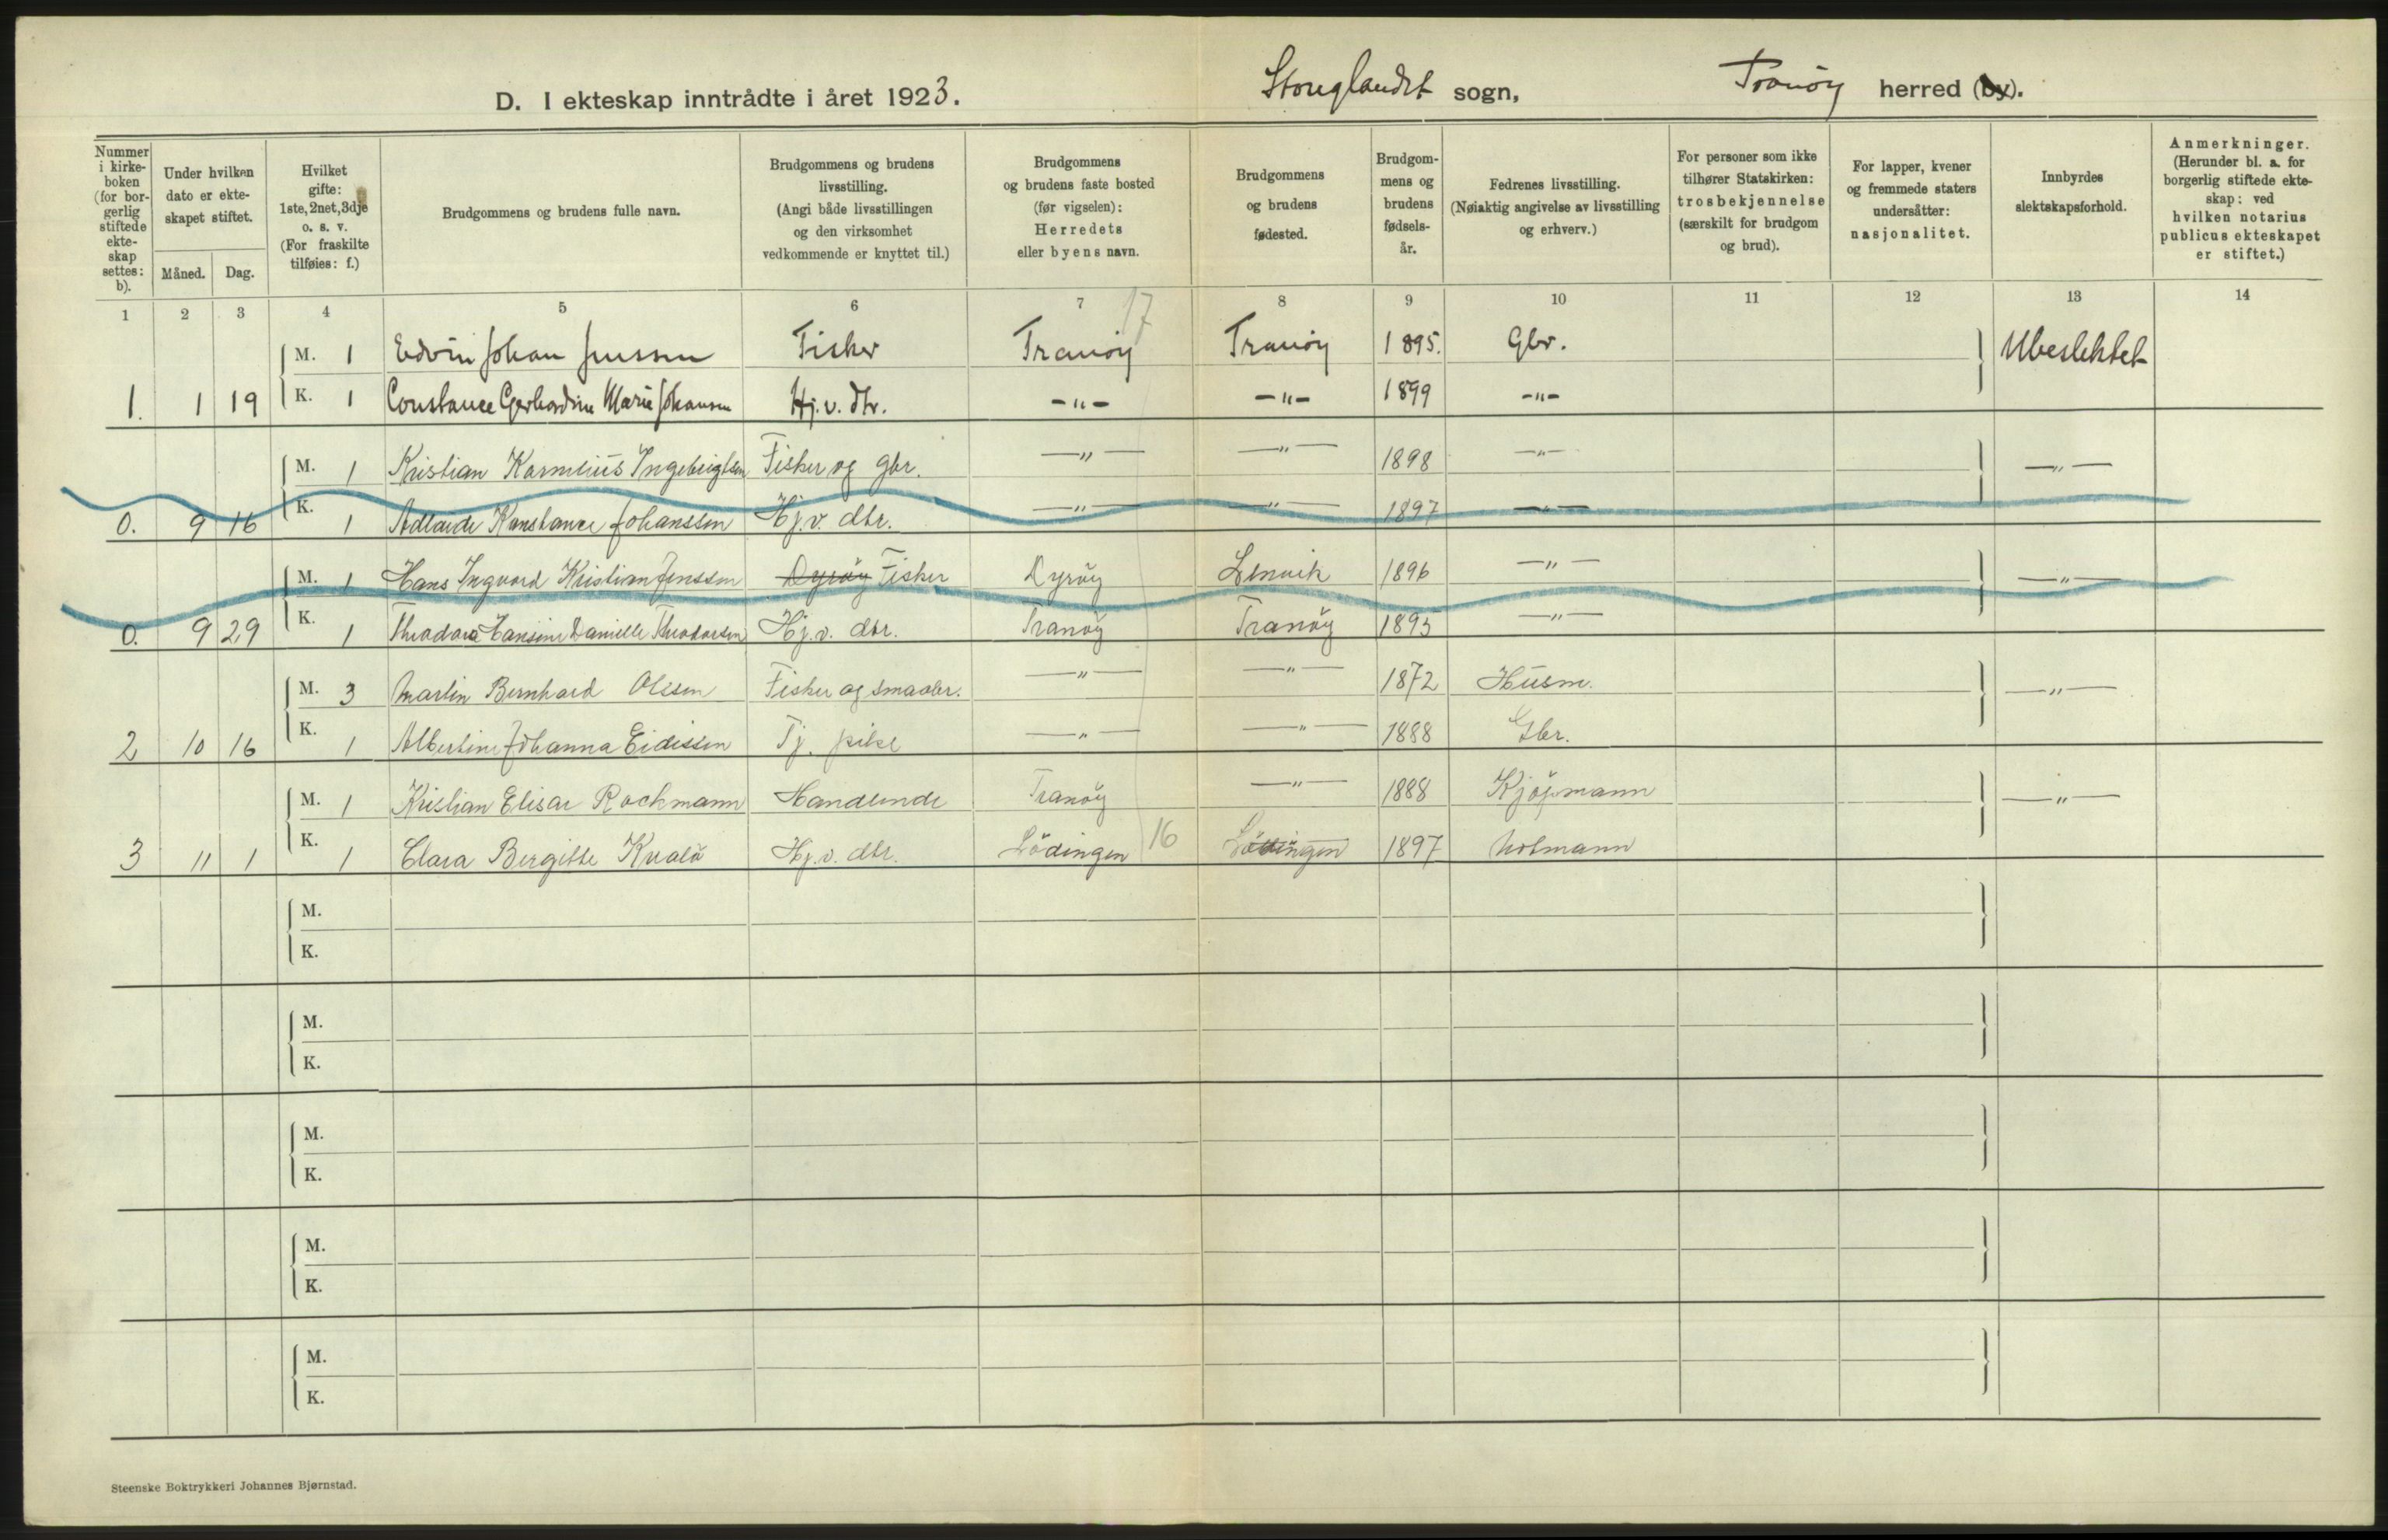 D. I ekteskap inntrådte i året 1923. Stonglandet sogn, Tranöy herred (by).
Nummer i kirkeboken (for borgerlig stiftede ekteskap settes: b).
Under hvilken dato er ekteskapet stiftet.
Måned. Dag.
Hvilket gifte: 1ste, 2net, 3dje o. s. v. (For fraskilte tilføies: f.)
Brudgommens og brudens fulle navn.
Brudgommens og brudens livsstilling. (Angi både livsstillingen og den virksomhet vedkommende er knyttet til.)
Brudgommens og brudens faste bosted (før vigselen): Herredets eller byens navn.
Brudgommens og brudens fødested.
Brudgommens og brudens fødselsår.
Fedrenes livsstilling. (Nøiaktig angivelse av livsstilling og erhverv.)
For personer som ikke tilhører Statskirken: trosbekjennelse (særskilt for brudgom og brud).
For lapper, kvener og fremmede staters undersåtter: nasjonalitet.
Innbyrdes slektskapsforhold.
Anmerkninger. (Herunder bl. a. for borgerlig stiftede ekteskap: ved hvilken notarius publicus ekteskapet er stiftet.)
1 2 3 4 5 6 7 8 9 10 11 12 13 14
17
M. 1 Edvin Johan Jenssen Fisker Tranöy Tranöy 1895. Gbr. Ubeslektet
1. 1 19 K. 1 Constance Gerhardine Marie Johansen Hj. v. dtr. -"- -"- 1899 -"-
M. 1 Kristian Kornelius Ingebrigtsen Fisker og gbr. -"- -"- 1898 -"- -"-
0. 9 16 K. 1 Adlaide Konstance Johanssen Hj. v. dtr. -"- -"- 1897 -"-
M. 1 Hans Ingvard Kristian Jenssen Dyröy Fisker Dyröy Lenvik 1896 -"- -"-
0. 9 29 K. 1 Theodora Hansine Danielle Theodorsen Hj. v. dtr. Tranöy Tranöy 1895 -"-
M. 3 Martin Bernhard Olssen Fisker og smaabr. -"- -"- 1872 Husm. -"-
2 10 16 K. 1 Albertine Johanna Eidissen Tj. pike -"- -"- 1888 Gbr.
M. 1 Kristian Elisar Rochmann Handlende Tranöy -"- 1888 Kjöpmann -"-
3 11 1 K. 1 Clara Bergitte Kvalö Hj. v. dtr. Lödingen 16 Lödingen 1897 Notmann
M.
K.
M.
K.
M.
K.
M.
K.
M.
K.
Steenske Boktrykkeri Johannes Bjørnstad.